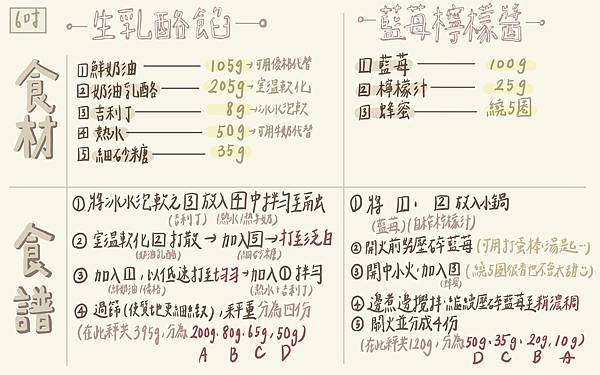 6吋
生乳酪餡
食材
1 鮮奶油 105g→可用優格代替
2 奶油乳酪 205g→室溫軟化
3 吉利丁 8g→冰水泡軟
4 熱水 50g→可用牛奶代替
5 細砂糖 35g
藍莓檸檬醬
1 藍莓 100g
2 檸檬汁 25g
3 蜂蜜 繞5圈
食譜
① 將冰水泡軟之3放入4中拌勻至融
(吉利丁) (熱水/熱牛奶)
② 室溫軟化2打散→加入5→打至泛白
(奶油乳酪) (細砂糖)
③ 加入1,以低速打至勻→加入①拌勻
(鮮奶油/優格) (熱水+吉利丁)
④ 過篩(使質地更細緻),秤重分為四份
(在此秤共395g,分為200g.80g.65g,50g)
A B C D
① 將1、2放入小鍋
(藍莓)(檸檬汁)
② 開火前努壓碎藍莓(可用打蛋棒.湯匙…)
③ 開中小火,加入3(繞5圈很香也不會太甜)
(蜂蜜)
④ 邊煮邊攪拌,繼續壓碎藍莓至稍濃稠
⑤ 關火並分成4份
(在此秤共120g,分為50g.35g.20g,10g)
D C B A